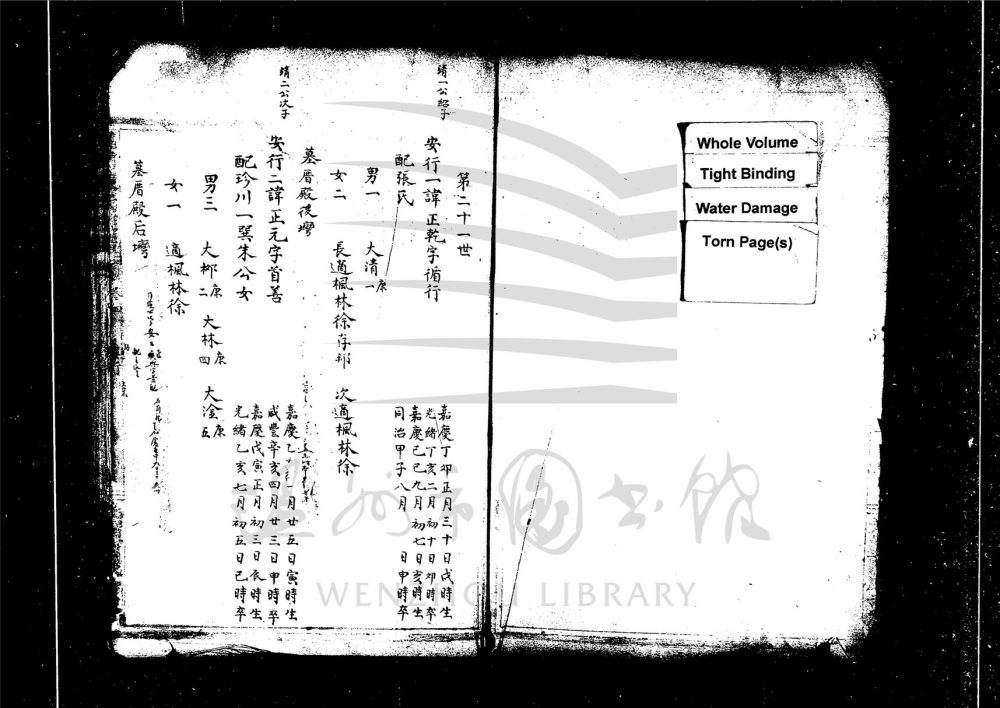 Whole Volume
Tight Binding
Water Damage
Torn Page(s)
第二十一世
靖一公紹子
安行一諱正乾字循行
嘉慶丁卯正月三十日戌時生
光緒丁亥二月初十日卯時卒
配張氏
嘉慶己巳九月初七日亥時生
同治甲子八月 日申時卒
男一 大清 康一
女二 長適楓林徐存邦 次適楓林徐
墓厝殿後壪
靖二公次子
安行二諱正元字首善
嘉慶乙 月廿五日寅時生
咸豐辛亥四月廿三日甲時卒
配珍川一巽朱公女
嘉慶戊寅正月初三日辰時生
光緒乙亥七月初五日巳時卒
男三 大郴 康二 大林 康四 大淦 康五
女一 適楓林徐
墓厝殿后壪
溫州市圖書館
WENZHOU LIBRARY